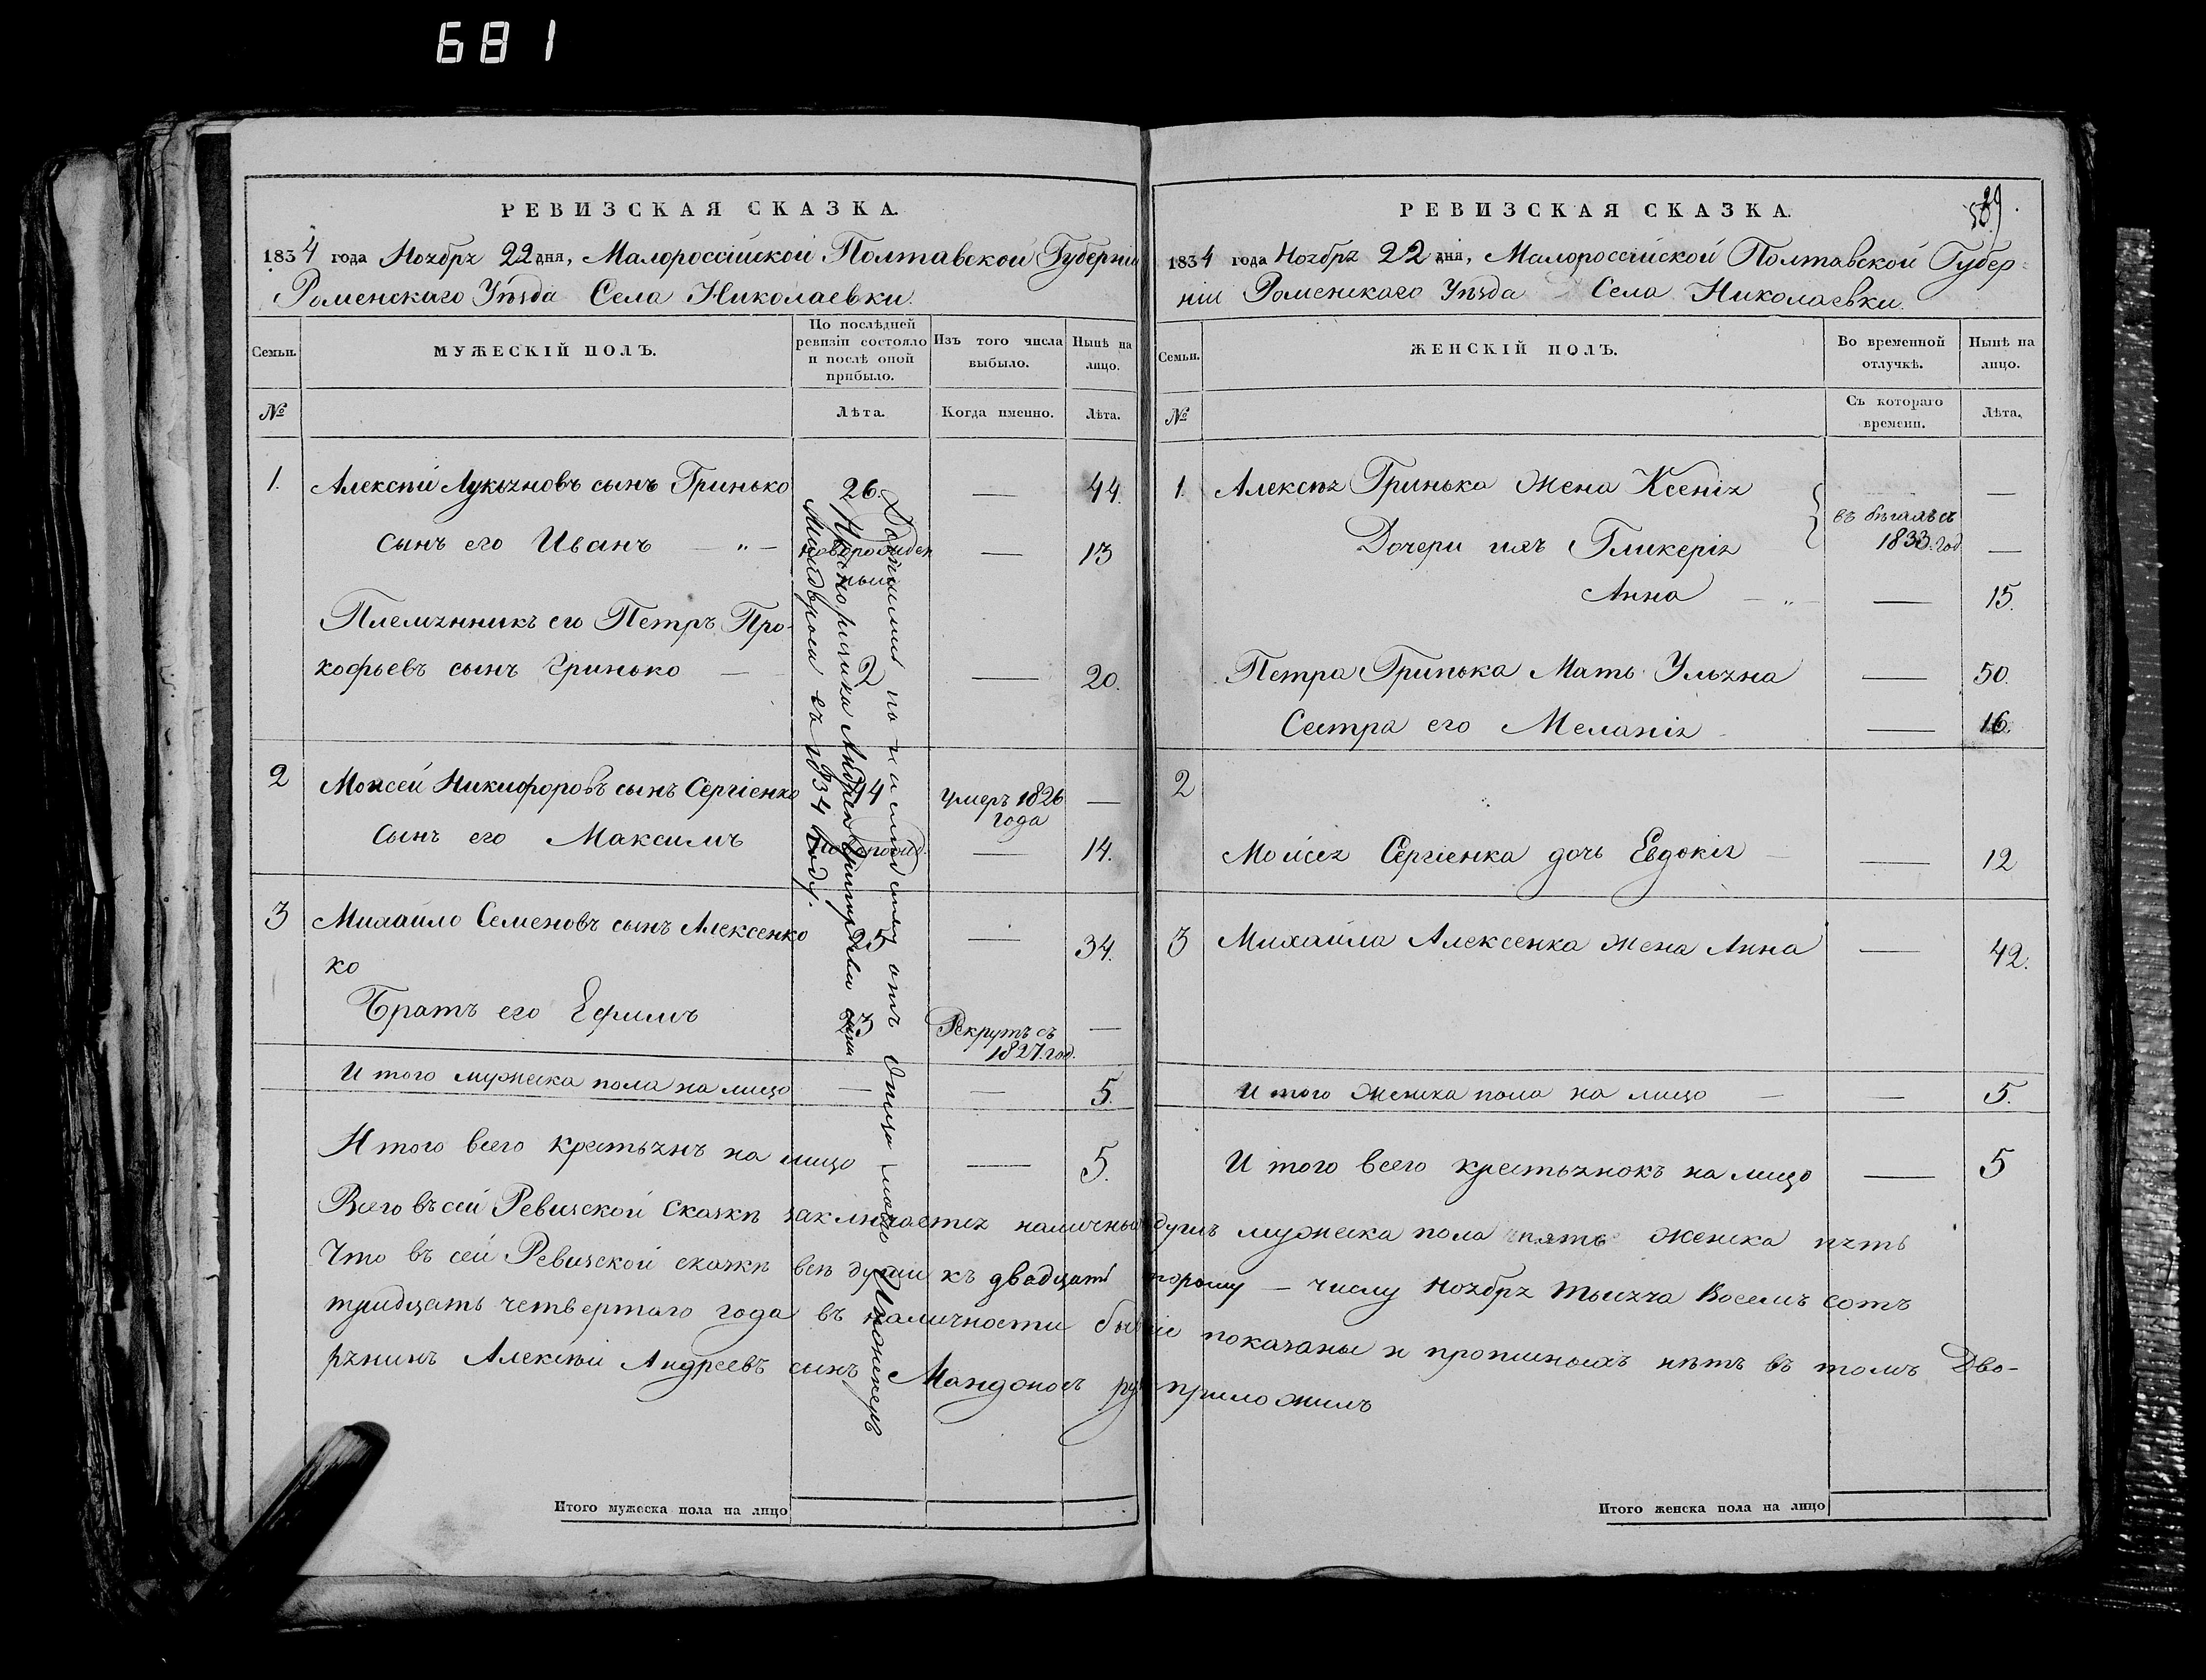 681
РЕВИЗСКАЯ СКАЗКА.
1834 года Ноября 22 дня, Малороссійской Полтавской Губерніи
Роменскаго Уѣзда Села Николаевки.
Семьи.
МУЖЕСКІЙ ПОЛЪ.
По послѣдней ревизіи состояло и послѣ оной прибыло.
Изъ того числа выбыло.
Нынѣ на лицо.
№
Лѣта.
Когда именно.
Лѣта.
1. Алексѣй Лукьяновъ сынъ Гринько 26. — 44.
сынъ его Иванъ — „ — новорожден ный — 13
Племянникъ его Петръ Про-
кофьевъ сынъ Гринько — 2 — 20.
2 Моисей Никифоровъ сынъ Сергіенко 44 умеръ 1826 года —
Сынъ его Максимъ новорожд. — 14.
3 Михайло Семеновъ сынъ Алексенко 25 — 34.
ко
Братъ его Ефимъ 23 Рекрутъ съ 1827. год. —
И того мужеска пола на лицо — — 5.
И того всего крестьянъ на лицо — 5.
Доставшися по наслѣдству отъ Отца
Андрея
съ 1834 году.
РЕВИЗСКАЯ СКАЗКА.
589.
1834 года Ноября 22 дня, Малороссійской Полтавской Губер=
ніи Роменскаго Уѣзда Села Николаевки.
Семьи.
ЖЕНСКІЙ ПОЛЪ.
Во временной отлучкѣ.
Нынѣ на лицо.
№
Съ котораго времени.
Лѣта.
1. Алексѣя Гринька Жена Ксенія —
въ бѣгахъ съ 1833. год
Дочери ихъ Гликерія —
Анна — „ — — 15.
Петра Гринька Мать Ульяна — 50.
Сестра его Меланія — 16.
2
Мойсея Сергіенка дочь Евдокія — — 12
3 Михайла Алексенка жена Анна — 42.
И того женска пола на лицо — — 5.
И того всего крестьянокъ на лицо — 5
Всего въ сей Ревизской Сказкѣ заключается наличныхъ душъ мужеска пола пять женска пять
Что въ сей Ревизской сказкѣ всѣ души къ двадцать второму — числу Ноября тысяча Восемъ сотъ
тридцать четвертаго года въ наличности бывшіе показаны и прописныхъ нѣтъ въ томъ Дво-
рянинъ Алексѣй Андреевъ сынъ приложилъ
Итого мужеска пола на лицо
Итого женска пола на лицо